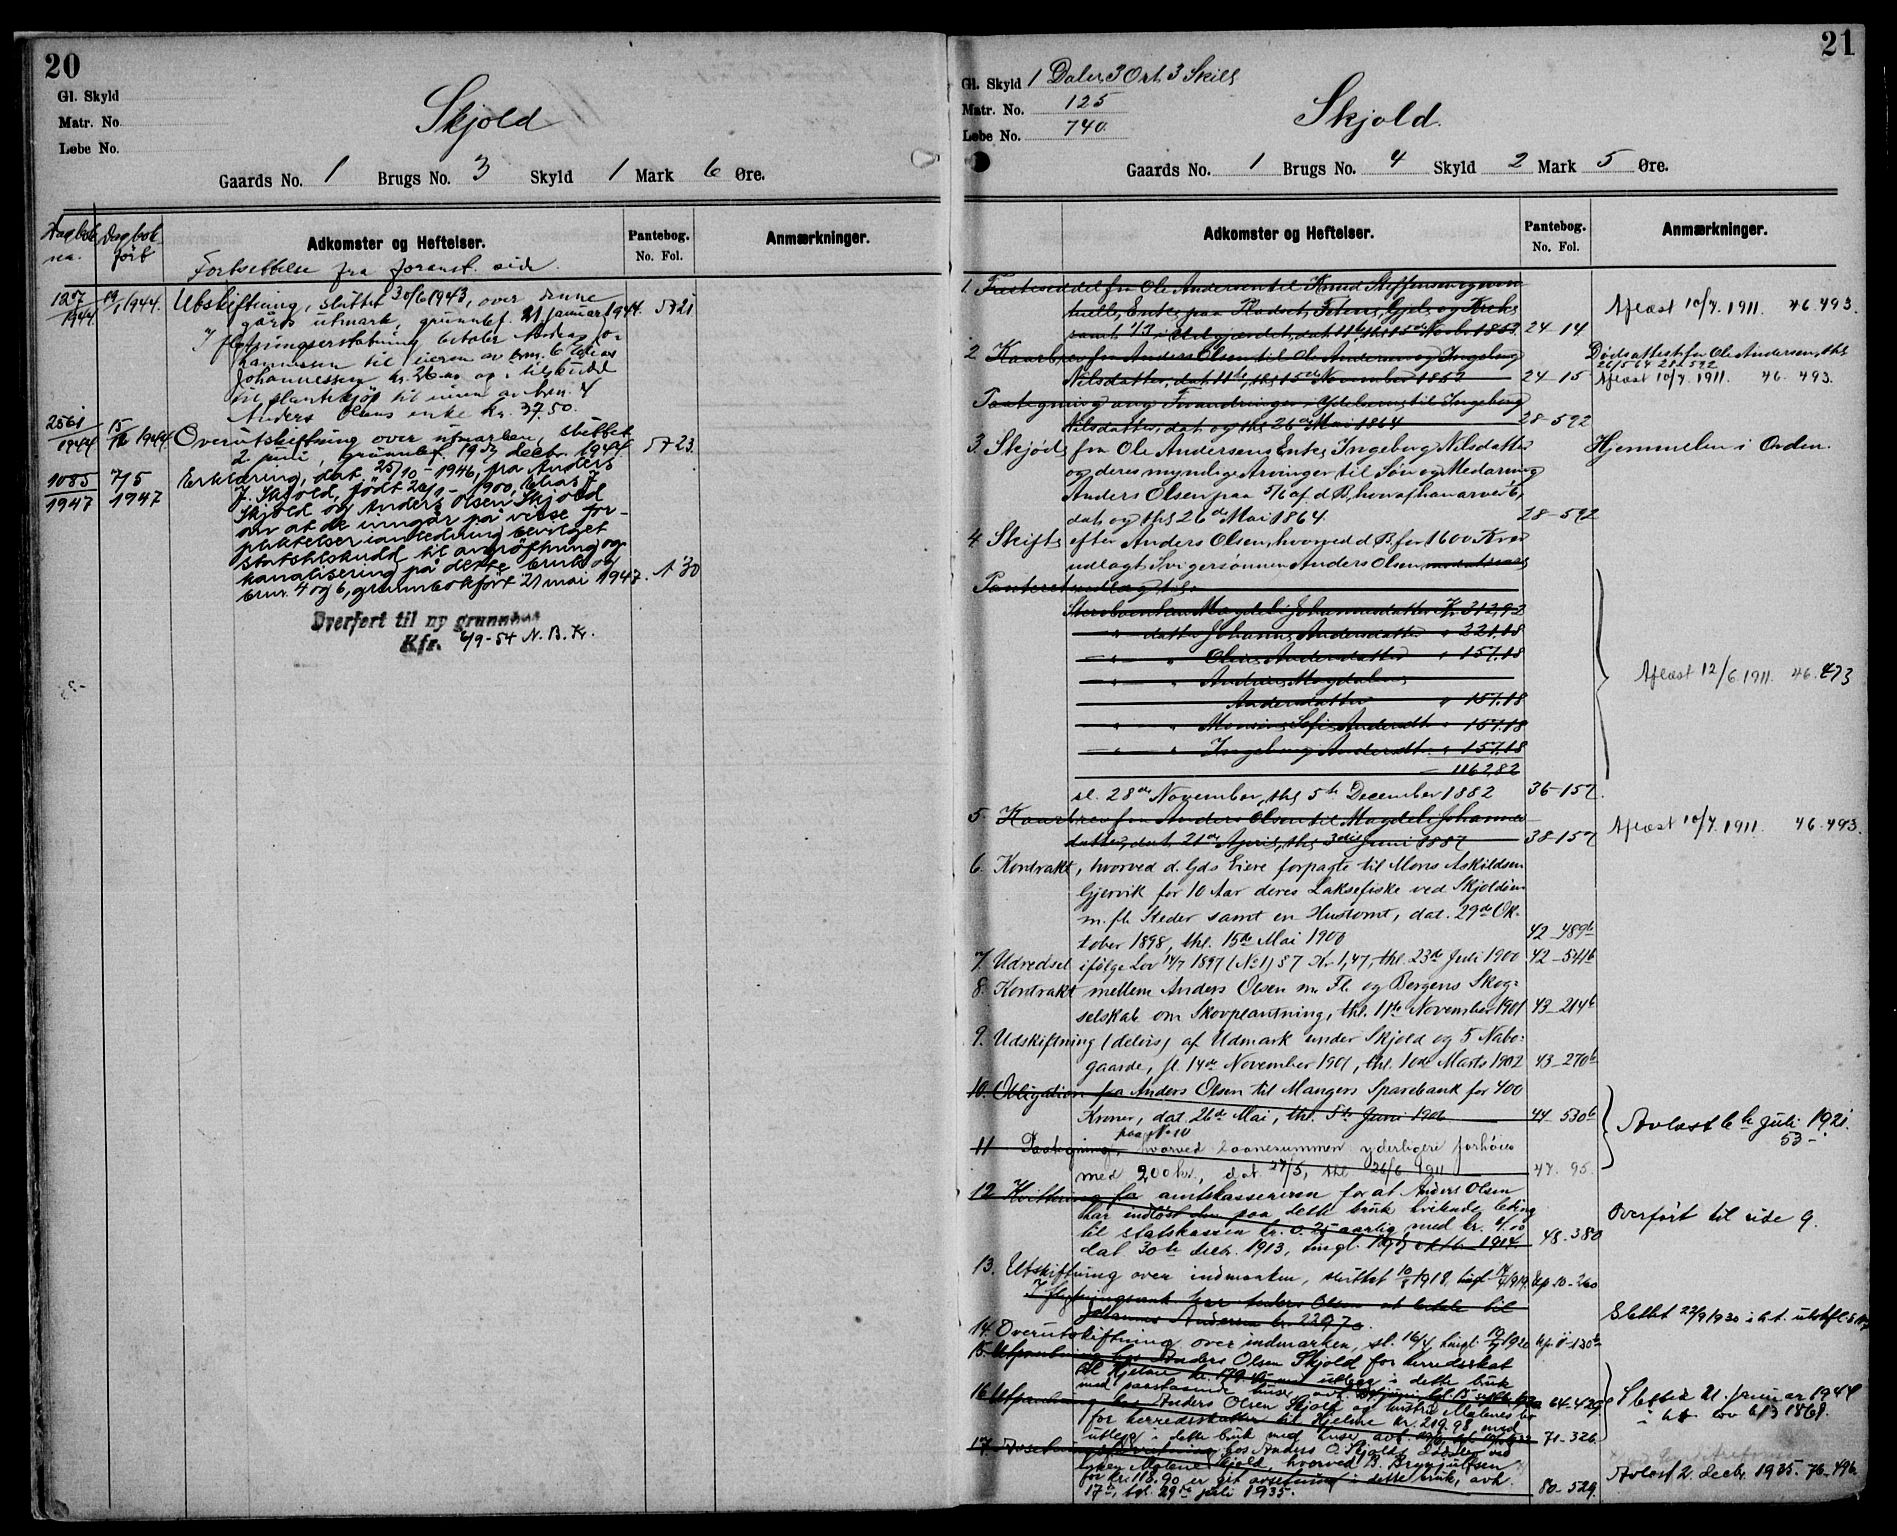 20
Gl. Skyld
Matr. No.
Løbe No.
Skjold
Gaards No. 1 Brugs No. 3 Skyld 1 Mark 6 Øre.
Dagbok no. Dagbok ført
Adkomster og Heftelser.
Pantebog. No. Fol.
Anmærkninger.
Fortsettelse fra foranst. side.
Utskiftning, sluttet 30/6 1943, over denne
gårds utmark, grunnbf. 21 januar 1944.
I flytningserstatning betaler Andreas Jo-
hannessen til eieren av brnr. 6 Elias
Johannessen kr. 26.00 og i tilskudd
til plantekjøp til eieren av brnr. 4
Anders Olsens enke kr. 37.50.
2561/1944 15/12 1944 Overutskiftning over utmarken, sluttet
2 juni, grunnbf. 19de decbr. 1944 23
1085/1947 7/5 1947 Erklæring, dat. 25/10 - 1946, fra Anders
J. Skjold, født 1900, Elias J.
Skjold og Anders Olsen Skjold
om at de inngår på visse for-
pliktelser i anledning bevilget
statstilskudd til avgrøftning og
kanalisering på dette bruk og
brnr. 4 og 6, grunnbokført 21 mai 1947. 30
Overført til ny grunnbok
Kfr. 6/9-54 N. B. Kr.
21
Gl. Skyld 1 Daler 3 Ort 3 Skill
Matr. No. 125
Løbe No. 740.
Skjold.
Gaards No. 1 Brugs No. 4 Skyld 2 Mark 5 Øre.
Adkomster og Heftelser.
Pantebog. No. Fol.
Anmærkninger.
1. Festeseddel fra Ole Andersen til Knud Steffensen
24-14
Aflæst 10/7. 1911. 46. 493.
2 Kaarbrev fra Anders Olsen til Ole Andersen og Ingeborg
Nilsdatter, dat. 11te, thl. 15de November 1852 24-15
Dødsattest for Ole Andersen, thl.
26/5 64 28 592
Aflæst 10/7. 1911. 46. 493.
Paategning ang. Forandringer i Ydelserne til Ingeborg
Nilsdatter, dat. og thl. 26de Mai 1864 28-592
3. Skjøde fra Ole Andersens Enke Ingeborg Nilsdatter
og deres myndige Arvinger til Søn og Medarving
Anders Olsen paa 5/6 af d. B., hvoraf han arver 1/6,
dat. og thl. 26de Mai 1864. 28-592
Hjemmelen i Orden.
4. Skifte efter Anders Olsen, hvorved d. B. for 1600 Kroner
udlagt Svigersønnen Anders Olsen
Panteret
Sterboenken Magdeli Johannesdatter Kr. 312,92
" datter Johanne Andersdatter " 221.18
" " Oline Andersdatter " 157.18
" " Andrea Magdalena
Andersdatter " 157.18
" " Monsine Sofie Andersdtr. " 157.18
" " Ingeborg Andersdtr. " 157.18
1162,82
sl. 28de November, thl. 5te December 1882 36-157.
Aflæst 12/6. 1911. 46. 473
5. Kaarbrev fra Anders Olsen til Magdeli Johannes-
datter, dat. 21de April, thl. 3die Juni 1887 38-157
Aflæst 10/7. 1911. 46. 493.
6. Kontrakt, hvorved d. Gds Eiere forpagte til Mons Askildsen
Gjervik for 10 Aar deres Laksefiske ved Skjoldøen
m. fl. Steder samt en Hustomt, dat. 29de Ok-
tober 1898, thl. 15de Mai 1900 42-489b
7. Udredsel ifølge Lov 14/7 1897 (No 1) § 7 Kr 1,47, thl. 23de Juli 1900 42-541b
8. Kontrakt mellem Anders Olsen m. Fl. og Bergens Skog-
selskab om Skovplantning, thl. 11te November 1901 43-214b
9. Udskiftning (delvis) af Udmark under Skjold og 5 Nabo-
gaarde, sl. 14de November 1901, thl. 10de Marts 1902 43-270b
10. Obligation fra Anders Olsen til Mangers Sparebank for 400
Kroner, dat. 26de Mai, thl. 5te Juni 1906 44-530b
Avlæst 6te Juli 1921.
53-
11 Paategning paa No 10, hvorved Laanesummen yderligere forhøies
med 200 kr., dat. 27/5, thl. 26/6 1911 47. 95.
12 Kvittering fra amtskassereren for at Anders Olsen
har indløst den paa dette bruk hvilende leding
til statskassen kr. 0.25 aarlig med kr. 6.00
dat 30te decbr. 1913, tingl. oktbr 1914. 48. 380
Overført til side 9.
13. Utskiftning over indmarken, sluttet 10/8 1918, 10-260
I flytningsomk. har Anders Olsen at betale til
Johannes Andersen kr. 229.70.
Slettet 22/9 1930 i h. t. utskfl. § 117
14. Overutskiftning over indmarken, sl. 16/4, tingl. 1920
15. Utpantning hos Anders Olsen Skjold for herredsskat
til Hjelme kr. 179.40 med utlegg i dette bruk
med paastaaende huser, avh. 64-429
Slettet 21. januar 1944
i h.t. lov 6/3 1869.
16. Utpantning hos Anders Olsen Skjold og hustru Malenes bo
for herredsskatter til Hjelme kr. 219.98 med
utlegg i dette bruk med huser, avh. 71-326.
17. hos Anders O. Skjolds dødsbo ved
enken Malene Skjold, hvorved B. Brynjulfsen
for kr. 118.90 er git avsetning i dette bruk, avh.
17de, tgl. 29de juli 1935. 80-529.
Avlæst 2. decbr. 1935. 76-496.